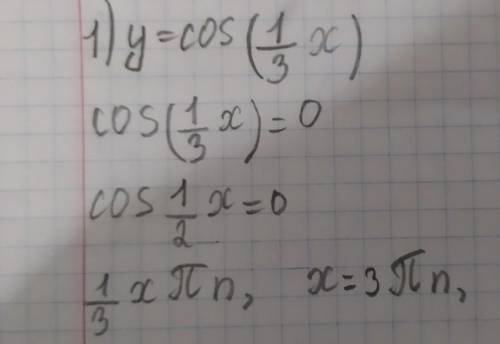 1) y = cos(1/3 x)
cos(1/3 x) = 0
cos 1/2 x = 0
1/3 x πn, x = 3πn,